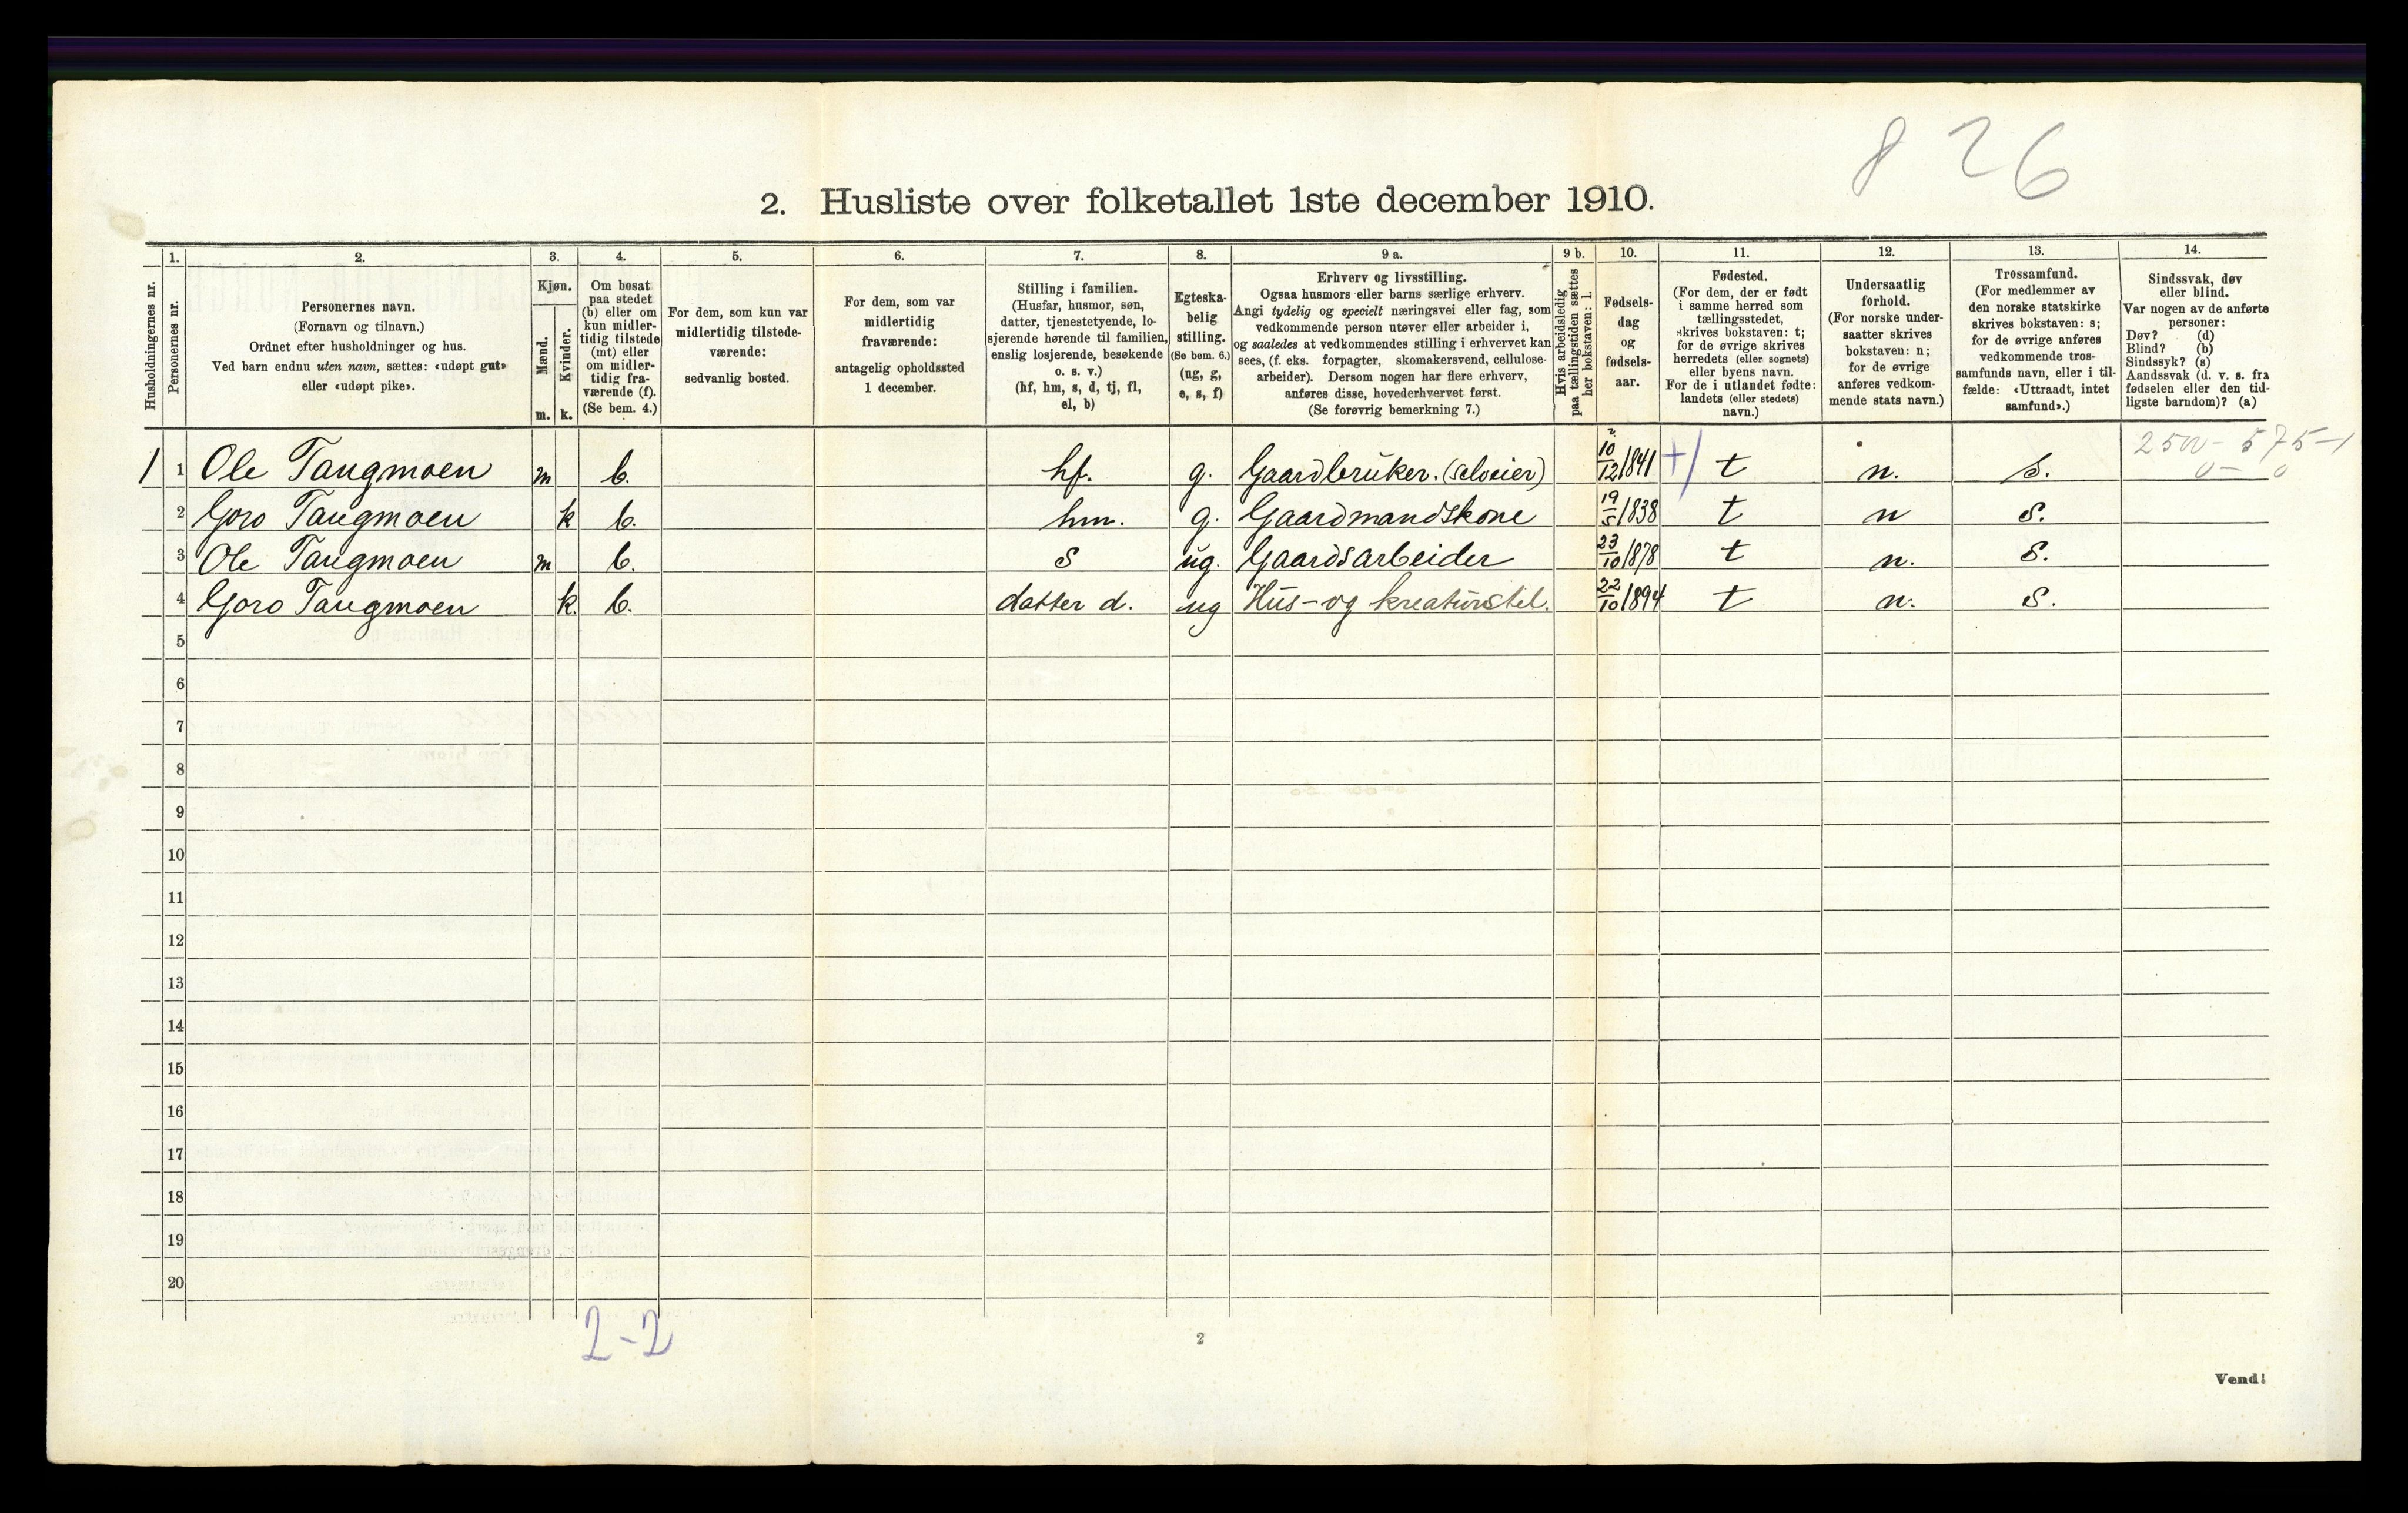 826
2. Husliste over folketallet 1ste december 1910.
Husholdningernes nr.
1.
Personernes nr.
2.
Personernes navn.
(Fornavn og tilnavn.)
Ordnet efter husholdninger og hus.
Ved barn endnu uten navn, sættes: «udøpt gut»
eller «udøpt pike».
3.
Kjøn.
Mænd.
m.
Kvinder.
k.
4.
Om bosat
paa stedet
(b) eller om
kun midler-
tidig tilstede
(mt) eller
om midler-
tidig fra-
værende (f).
(Se bem. 4.)
5.
For dem, som kun var
midlertidig tilstede-
værende:
sedvanlig bosted.
6.
For dem, som var
midlertidig
fraværende:
antagelig opholdssted
1 december.
7.
Stilling i familien.
(Husfar, husmor, søn,
datter, tjenestetyende, lo-
sjerende hørende til familien,
enslig losjerende, besøkende
o. s. v.)
(hf, hm, s, d, tj, fl,
el, b)
8.
Egteska-
belig
stilling.
(Se bem. 6.)
(ug, g,
e, s, f)
9 a.
Erhverv og livsstilling.
Ogsaa husmors eller barns særlige erhverv.
Angi tydelig og specielt næringsvei eller fag, som
vedkommende person utøver eller arbeider i,
og saaledes at vedkommendes stilling i erhvervet kan
sees, (f. eks. forpagter, skomakersvend, cellulose-
arbeider). Dersom nogen har flere erhverv,
anføres disse, hovederhvervet først.
(Se forøvrig bemerkning 7.)
9 b.
Hvis arbeidsledig
paa tællingstiden sættes
her bokstaven: l.
10.
Fødsels-
dag
og
fødsels-
aar.
11.
Fødested.
(For dem, der er født
i samme herred som
tællingsstedet,
skrives bokstaven: t;
for de øvrige skrives
herredets (eller sognets)
eller byens navn.
For de i utlandet fødte:
landets (eller stedets)
navn.)
12.
Undersaatlig
forhold.
(For norske under-
saatter skrives
bokstaven: n;
for de øvrige
anføres vedkom-
mende stats navn.)
13.
Trossamfund.
(For medlemmer av
den norske statskirke
skrives bokstaven: s;
for de øvrige anføres
vedkommende tros-
samfunds navn, eller i til-
fælde: «Uttraadt, intet
samfund».)
14.
Sindssvak, døv
eller blind.
Var nogen av de anførte
personer:
Døv? (d)
Blind? (b)
Sindssyk? (s)
Aandssvak (d. v. s. fra
fødselen eller den tid-
ligste barndom)? (a)
1 1 Ole Taugmoen m b. hf. g. Gaardbruker. (selveier) 10/12 1841 t n. s.
2 Goro Taugmoen k b. hm. g. Gaardmandskone 19/5 1838 t n s.
3 Ole Taugmoen m b. s ug. Gaardsarbeider 23/10 1878 t n. s.
4 Goro Taugmoen k. b. datter d. ug Hus- og kreaturstel. 22/10 1894 t n. s.
5
6
7
8
9
10
11
12
13
14
15
16
17
18
19
20
2-2
2
Vend!